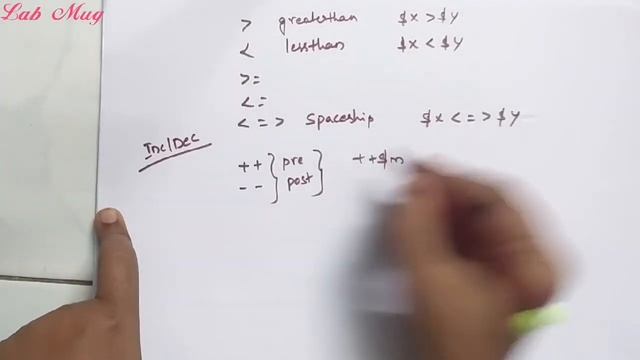 Lab Mug
> greaterthan $x > $y
< lessthan $x < $y
>=
<=
<=> spaceship $x <=> $y
Inc/Dec
++ pre ++$m
-- post